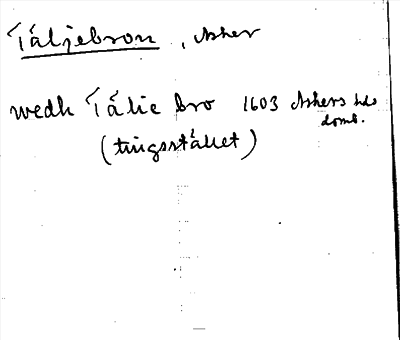 Täljebron, Asker
wedh Tälie bro 1603 Askers hds
domb.
(tingsstället)